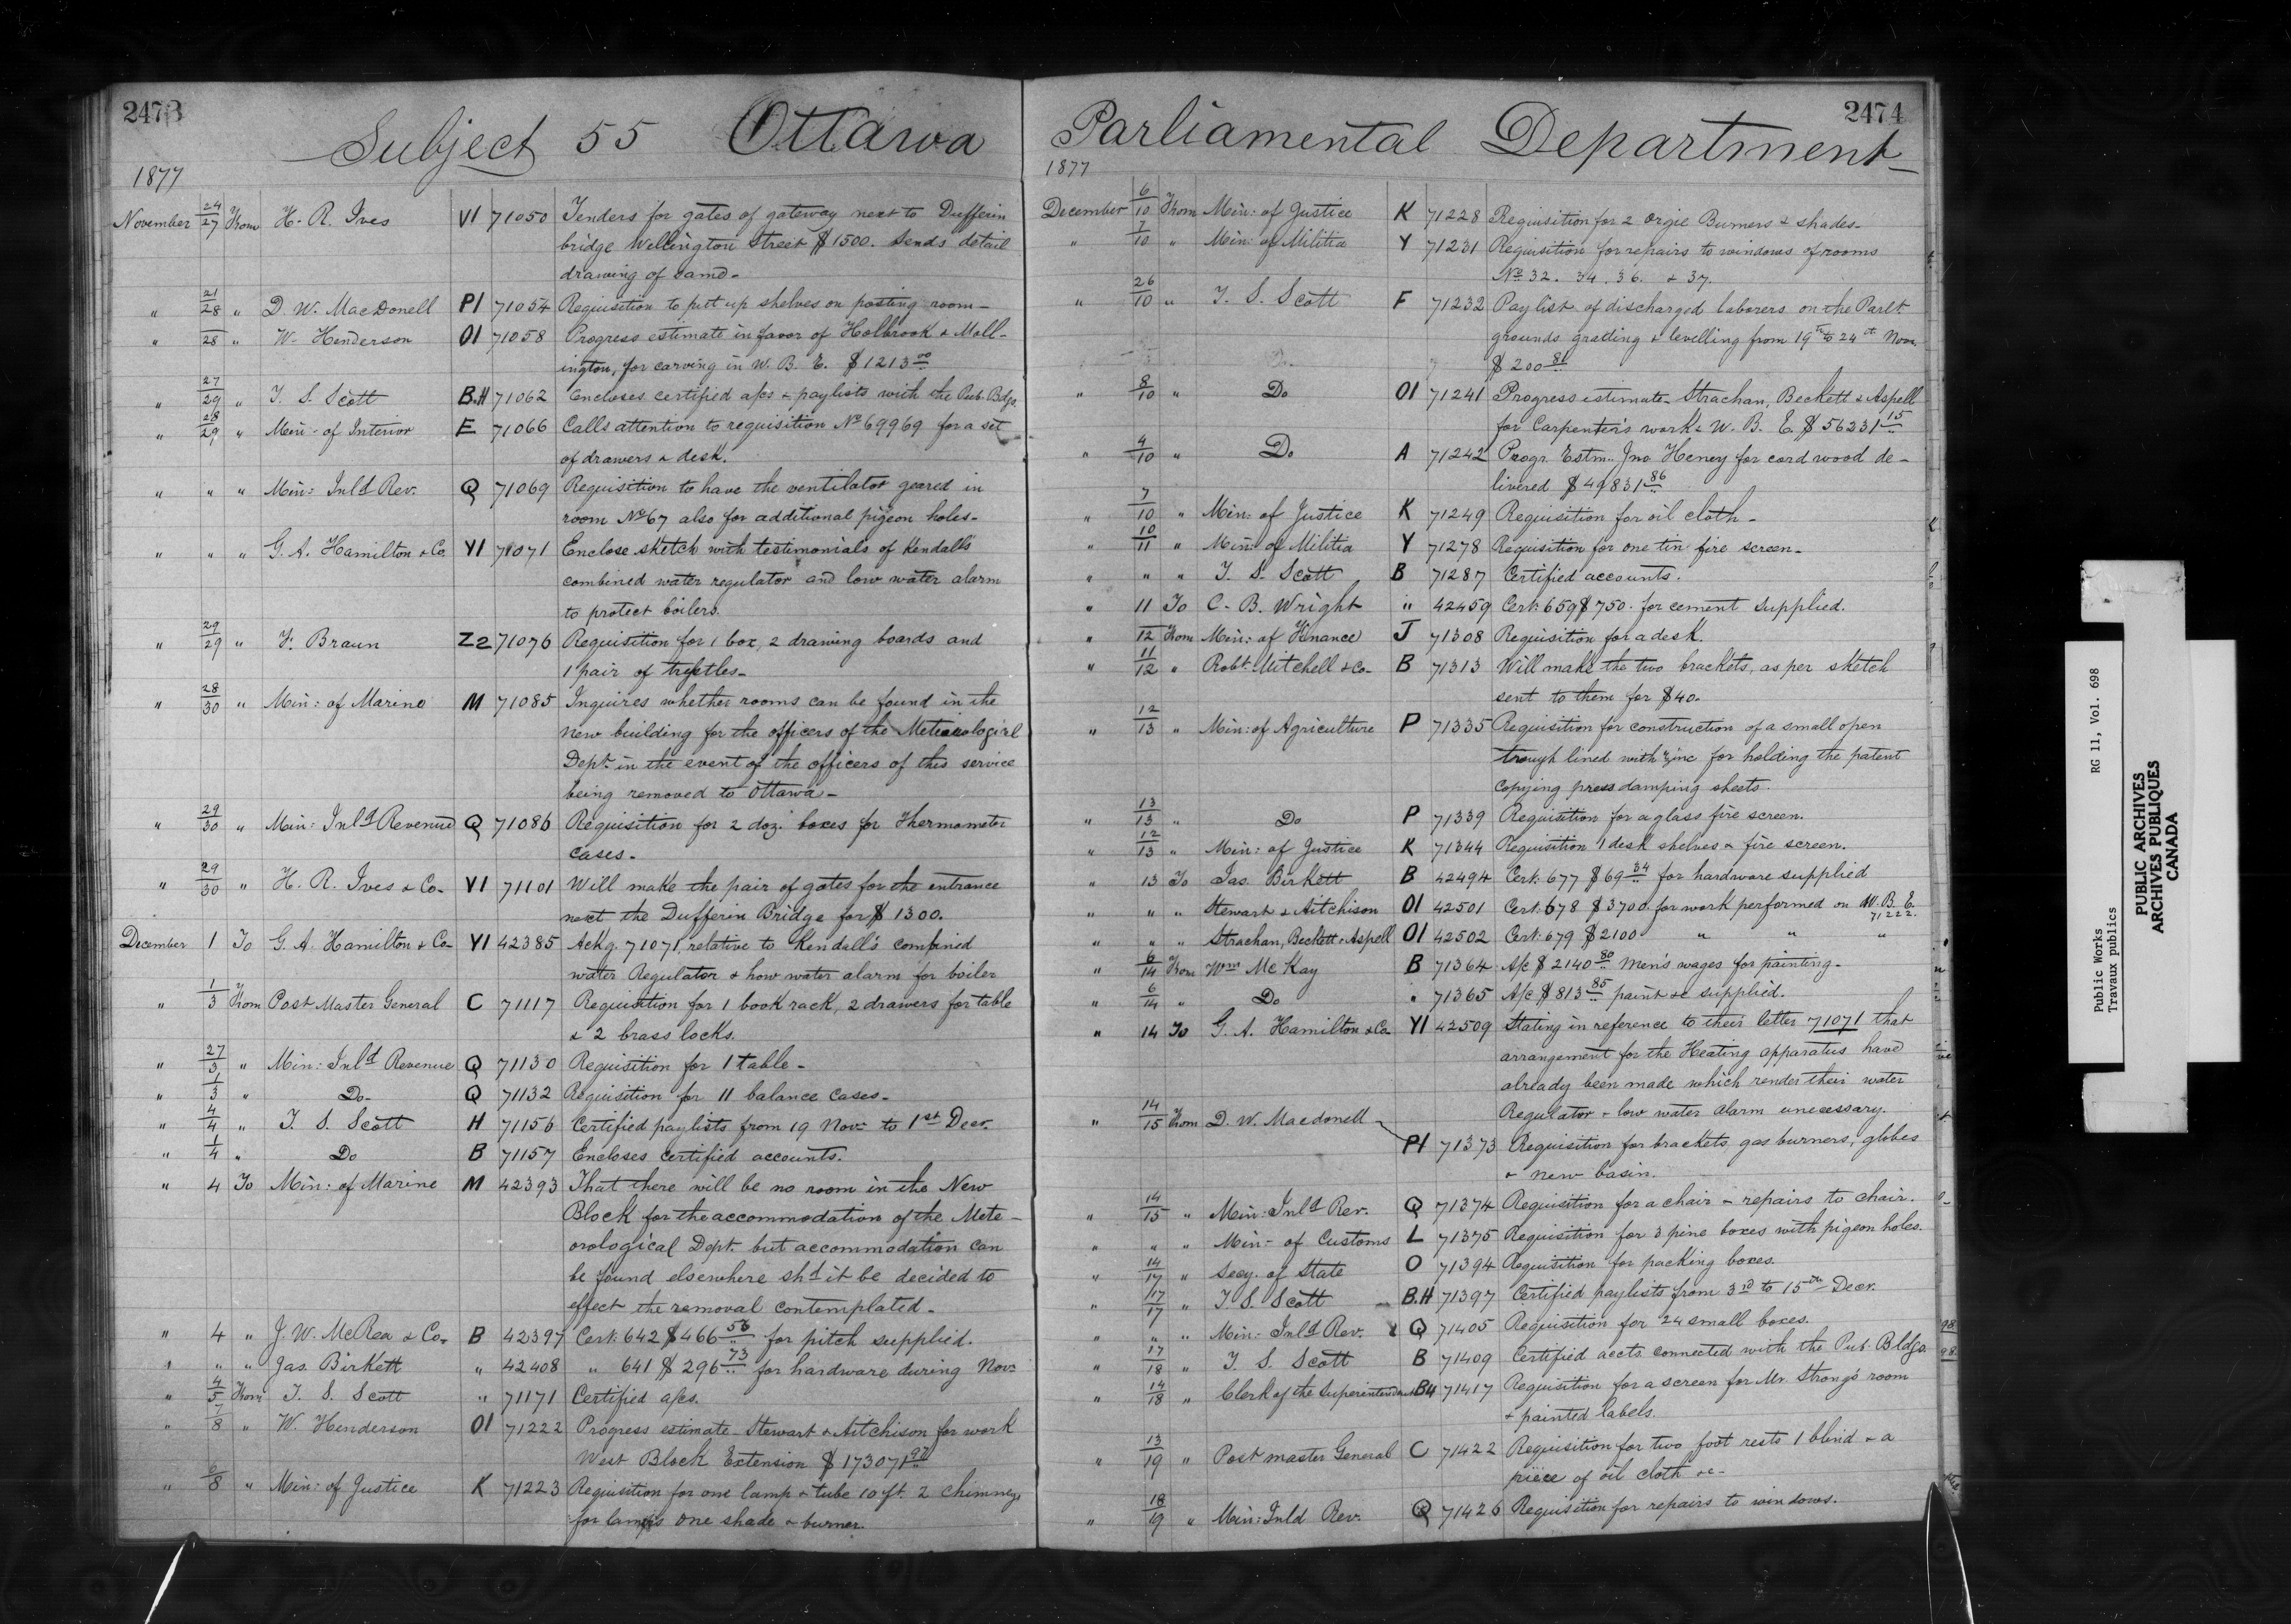 2473
Subject 55 Ottawa
1877
November 24/27 From H. R. Ives V1 71050 Tenders for gates of gateway next to Dufferin
bridge Wellington Street $1500. Sends detail
drawing of same-
" 21/28 " D. W. MacDonell P1 71054 Requisition to put up shelves on posting room-
" 28 " W. Henderson O1 71058 Progress estimate in favor of Holbrook & Moll-
ington, for carving in W. B. E. $1213 00
" 27/29 " T. S. Scott B.H 71062 Encloses certified a/cs & paylists with the Pub. Bdgs.
" 28/29 " Min: of Interior E 71066 Calls attention to requisition No 69969 for a set
of drawers & desk.
" " " Min: Inld Rev. Q 71069 Requisition to have the ventilator geared in
room No 67 also for additional pigeon holes-
" " " G. A. Hamilton & Co. Y1 71071 Enclose sketch with testimonials of Kendall's
combined water regulator and low water alarm
to protect boilers.
" 29/29 " F. Braun Z2 71076 Requisition for 1 box, 2 drawing boards and
1 pair of trestles-
" 28/30 " Min: of Marine M 71085 Inquires whether rooms can be found in the
new building for the officers of the Meteorological
Dept. in the event of the officers of this service
being removed to Ottawa-
" 29/30 " Min: Inld Revenue Q 71086 Requisition for 2 doz. boxes for Thermometer
cases-
" 29/30 " H. R. Ives & Co- V1 71101 Will make the pair of gates for the entrance
next the Dufferin Bridge for $1300.
December 1 To G. A. Hamilton & Co- Y1 42385 Ackg. 71071 relative to Kendall's combined
water Regulator & how water alarm for boiler
" 1/3 From Post Master General C 71117 Requisition for 1 book rack, 2 drawers for table
& 2 brass locks.
" 27/3 " Min: Inld Revenue Q 71130 Requisition for 1 table-
" 1/3 " Do- Q 71132 Requisition for 11 balance cases-
" 4/4 " T. S. Scott H 71156 Certified paylists from 19 Nov: to 1st Decr.
" 1/4 " Do B 71157 Encloses certified accounts.
" 4 To Min: of Marine M 42393 That there will be no room in the New
Block for the accommodation of the Mete-
orological Dept. but accommodation can
be found elsewhere shd it be decided to
effect the removal contemplated-
" 4 " J. W. McRea & Co- B 42397 Cert: 642 $466 56 for pitch supplied.
" " " Jas. Birkett " 42408 " 641 $296 73 for hardware during Nov:
" 4/5 From T. S. Scott " 71171 Certified a/cs.
" 7/8 " W. Henderson O1 71222 Progress estimate- Stewart & Aitchison for work
West Block Extension $173071 92
" 6/8 " Min: of Justice K 71223 Requisition for one lamp & tube 10 ft. 2 chimneys
for lamps one shade & burner.
2474
Parliamental Department
1877
December 6/10 From Min: of Justice K 71228 Requisition for 2 orgie Burners & shades-
" 7/10 " Min: of Militia Y 71231 Requisition for repairs to windows of rooms
No 32. 34. 36. & 37.
" 26/10 " T. S. Scott F 71232 Pay list of discharged laborers on the Parlt
grounds grading & levelling from 19th to 24th Nov.
$200 81
" 8/10 " Do O1 71241 Progress estimate- Strachan, Beckett & Aspell
for Carpenter's works W. B. E. $56231 15
" 4/10 " Do A 71242 Progr. Estm. Jno. Heney for cord wood de-
livered $49831 86
" 7/10 " Min: of Justice K 71249 Requisition for oil cloth-
" 10/11 " Min: of Militia Y 71278 Requisition for one tin fire screen-
" " " T. S. Scott B 71287 Certified accounts.
" 11 To C. B. Wright " 42459 Cert: 659 $750. for cement supplied.
" 12 From Min: of Finance J 71308 Requisition for a desk.
" 11/12 " Robt. Mitchell & Co- B 71313 Will make the two brackets, as per sketch
sent to them for $40.
" 12/13 " Min: of Agriculture P 71335 Requisition for construction of a small open
trough lined with zinc for holding the patent
copying press damping sheets.
" 13/13 " Do P 71339 Requisition for a glass fire screen.
" 12/13 " Min: of Justice K 71344 Requisition 1 desk shelves & fire screen.
" 13 To Jas. Birkett B 42494 Cert: 677 $69 34 for hardware supplied
" " " Stewart & Aitchison O1 42501 Cert: 678 $3700. for work performed on W. B. E.
71222.
" " " Strachan, Beckett & Aspell O1 42502 Cert: 679 $2100 " " "
" 6/14 From Wm McKay B 71364 A/c $2140 80 Men's wages for painting-
" 6/14 " Do " 71365 A/c $813 85 paint &c supplied.
" 14 To G. A. Hamilton & Co- Y1 42509 Stating in reference to their letter 71071 that
arrangement for the Heating apparatus have
already been made which render their water
Regulator & low water alarm unecessary.
" 14/15 From D. W. Macdonell P1 71373 Requisition for brackets gas burners, globes
& new basin.
" 14/15 " Min: Inld Rev. Q 71374 Requisition for a chair & repairs to chair.
" " " Min- of Customs L 71375 Requisition for 3 pine boxes with pigeon holes.
" 14/17 " Secy. of State O 71394 Requisition for packing boxes.
" 17/17 " T. S. Scott B.H 71397 Certified paylists from 3rd to 15th Decr.
" " " Min: Inld Rev. Q 71405 Requisition for 24 small boxes.
" 17/18 " T. S. Scott B 71409 Certified accts. connected with the Pub. Bldgs.
" 14/18 " Clerk of the Superintendent B4 71417 Requisition for a screen for Mr. Strong's room
& painted labels.
" 13/19 " Post master General C 71422 Requisition for two foot rests 1 blind & a
piece of oil cloth &c-
" 18/19 " Min: Inld Rev. Q 71426 Requisition for repairs to windows.
Public Works RG 11, Vol. 698
Travaux publics
PUBLIC ARCHIVES
ARCHIVES PUBLIQUES
CANADA